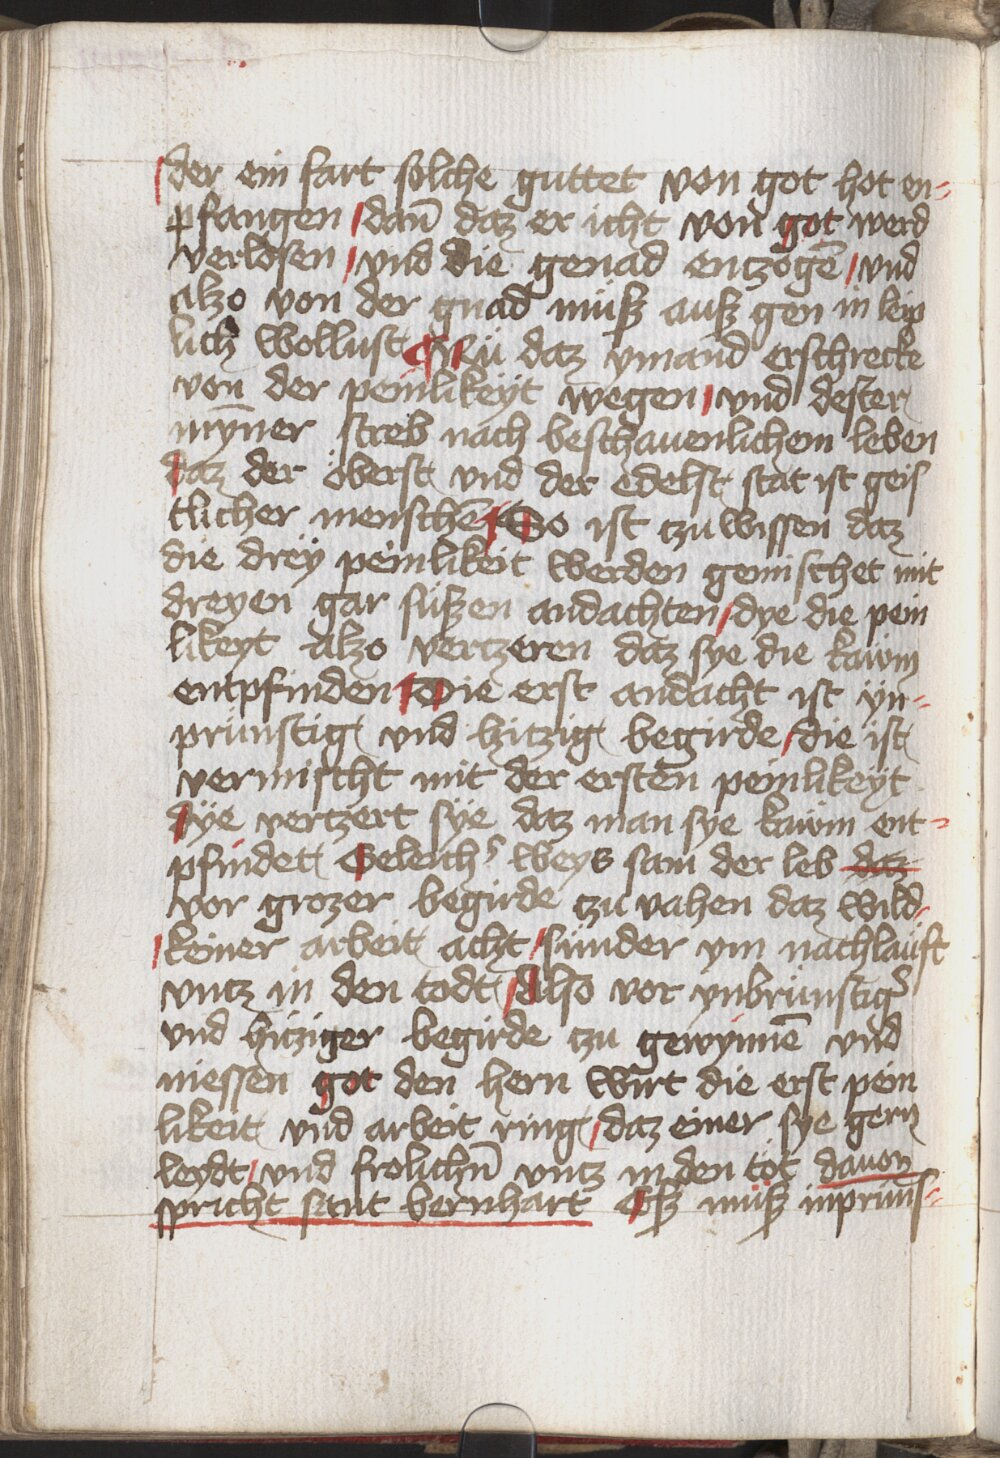 der ein fart sölche guttet von got hot en-
pfangen dan̄ daz er icht von got werd
verlosen vnd die genad entzogē vnd
alzo von der gnad müß auß gen in leip
lich wollust Nü daz ymand erschrecke
von der peinlikeyt wegen vnd dester
myn̄er streb nach beschauenlichem leben
daz der öberst vnd der edelst stat ist geis
tlicher menschē So ist tzu wissen daz
die dreÿ peinlikeit werden gemischet mit
dreyen gar süßen andachten dye die pein
likeyt alzo vertzeren daz sye die kawm
entpfinden Die erst andacht ist yn-
prünstig vnd hitzig begirde die ist
vermischt mit der ersten peinlikeyt
dÿe vertzert sÿe daz man sye kawm ent-
pfindet Geleich͛ weys sam der leb daz
vor grozer begirde tzu vahen daz wild
keiner arbeit acht sunder ym nachlauft
vntz in den todt Also vor ynbrünstig͛
vnd hitziger begirde tzu gewynnē vnd
niessen got den hern wirt die erst pein
likeit vnd arbeit ring daz einer sye gern
leydt vnd frolichn̄ vntz in den tot dauon
spricht sant bernhart Eß müß inpruns-